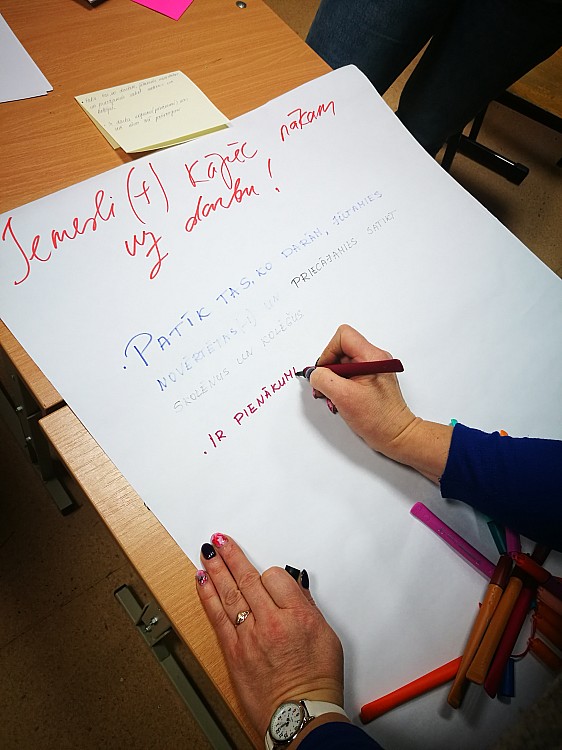 Iemesli (+) kāpēc nākam
uz darbu!
• PATĪK TAS, KO DARĀM, JŪTAMIES
NOVĒRTĒTAS :) UN PRIECĀJAMIES SATIKT
SKOLĒNUS UN KOLĒĢUS
• IR PIENĀKUMI